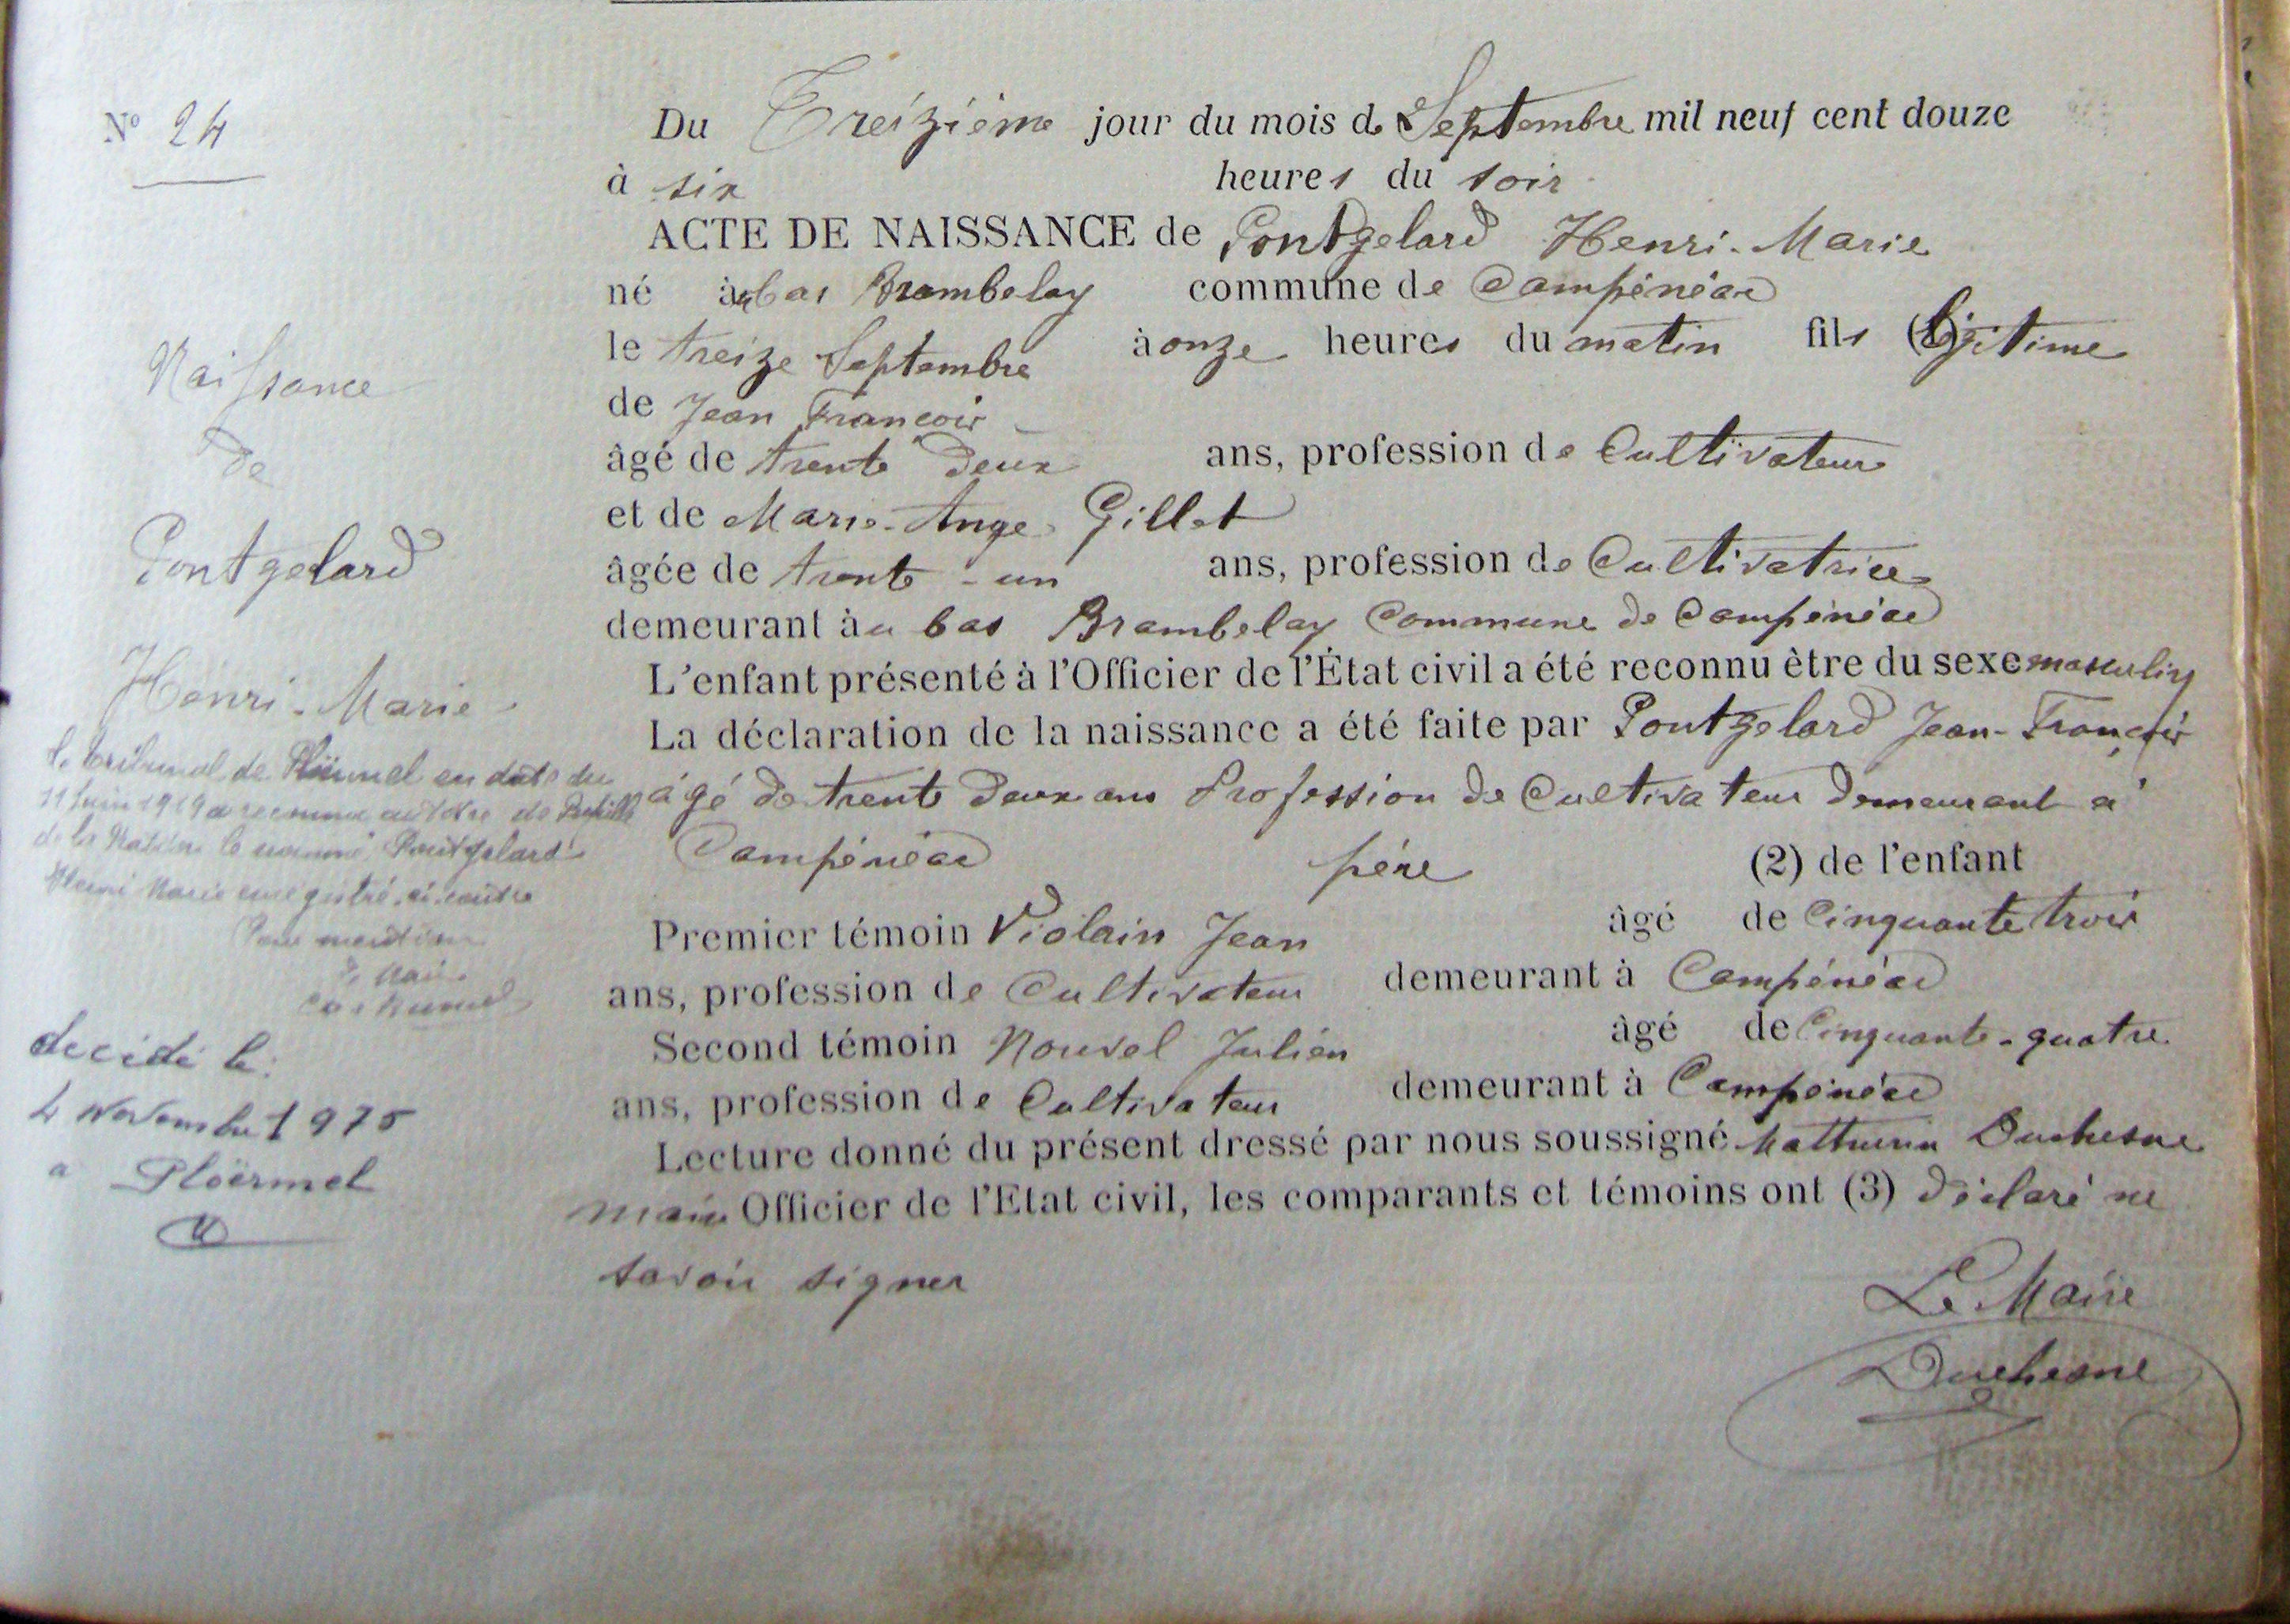 Nº 24
Naissance
de
Pontgelard
Henri-Marie
le tribunal de Ploërmel en date du
11 Juin 1919 a reconnu au titre de Pupille
de la Nation le nommé Pontgelard
Henri Marie enregistré ci-contre
Pour mention
Le Maire
décédé le:
4 novembre 1975
a Ploërmel
Du Treizième jour du mois de Septembre mil neuf cent douze
à six heures du soir
ACTE DE NAISSANCE de Pontgelard Henri-Marie
né au bas Brambelay commune de Campénéac
le treize Septembre à onze heures du matin fils (1) légitime
de Jean François
âgé de trente deux ans, profession de Cultivateur
et de Marie-Ange Gillet
âgée de trente-un ans, profession de Cultivatrice
demeurant àu bas Brambelay Commune de Campénéac
L'enfant présenté à l'Officier de l'État civil a été reconnu être du sexe masculin
La déclaration de la naissance a été faite par Pontgelard Jean-François
âgé de trente deux ans Profession de Cultivateur demeurant à
Campénéac père (2) de l'enfant
Premier témoin Violain Jean âgé de Cinquante trois
ans, profession de Cultivateur demeurant à Campénéac
Second témoin Nouvel Julien âgé de Cinquante-quatre
ans, profession de Cultivateur demeurant à Campénéac
Lecture donné du présent dressé par nous soussigné Mathurin Duchesne
maire Officier de l'Etat civil, les comparants et témoins ont (3) déclaré ne
savoir signer
Le Maire
Duchesne